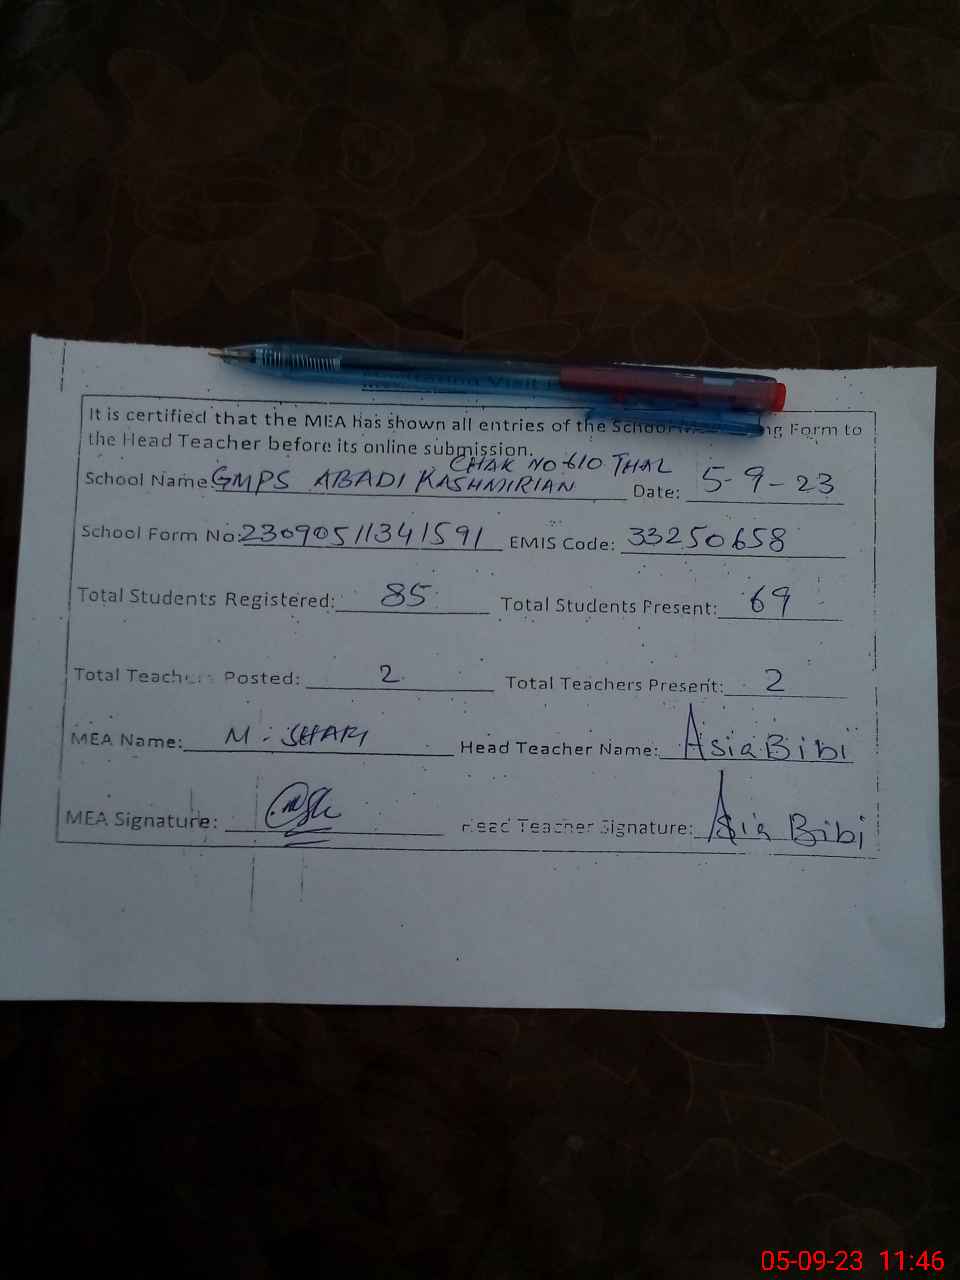 It is certified that the MEA has shown all entries of the School ng Form to
the Head Teacher before its online submission.
CHAK NO 610 THAL
School Name GMPS ABADI KASHMIRIAN Date: 5-9-23
School Form No: 23090511341591 EMIS Code: 33250658
Total Students Registered: 85 Total Students Present: 69
Total Teachers Posted: 2 Total Teachers Present: 2
MEA Name: M. Head Teacher Name: Asia Bibi
MEA Signature: Head Teacher Signature: Asia Bibi
05-09-23 11:46